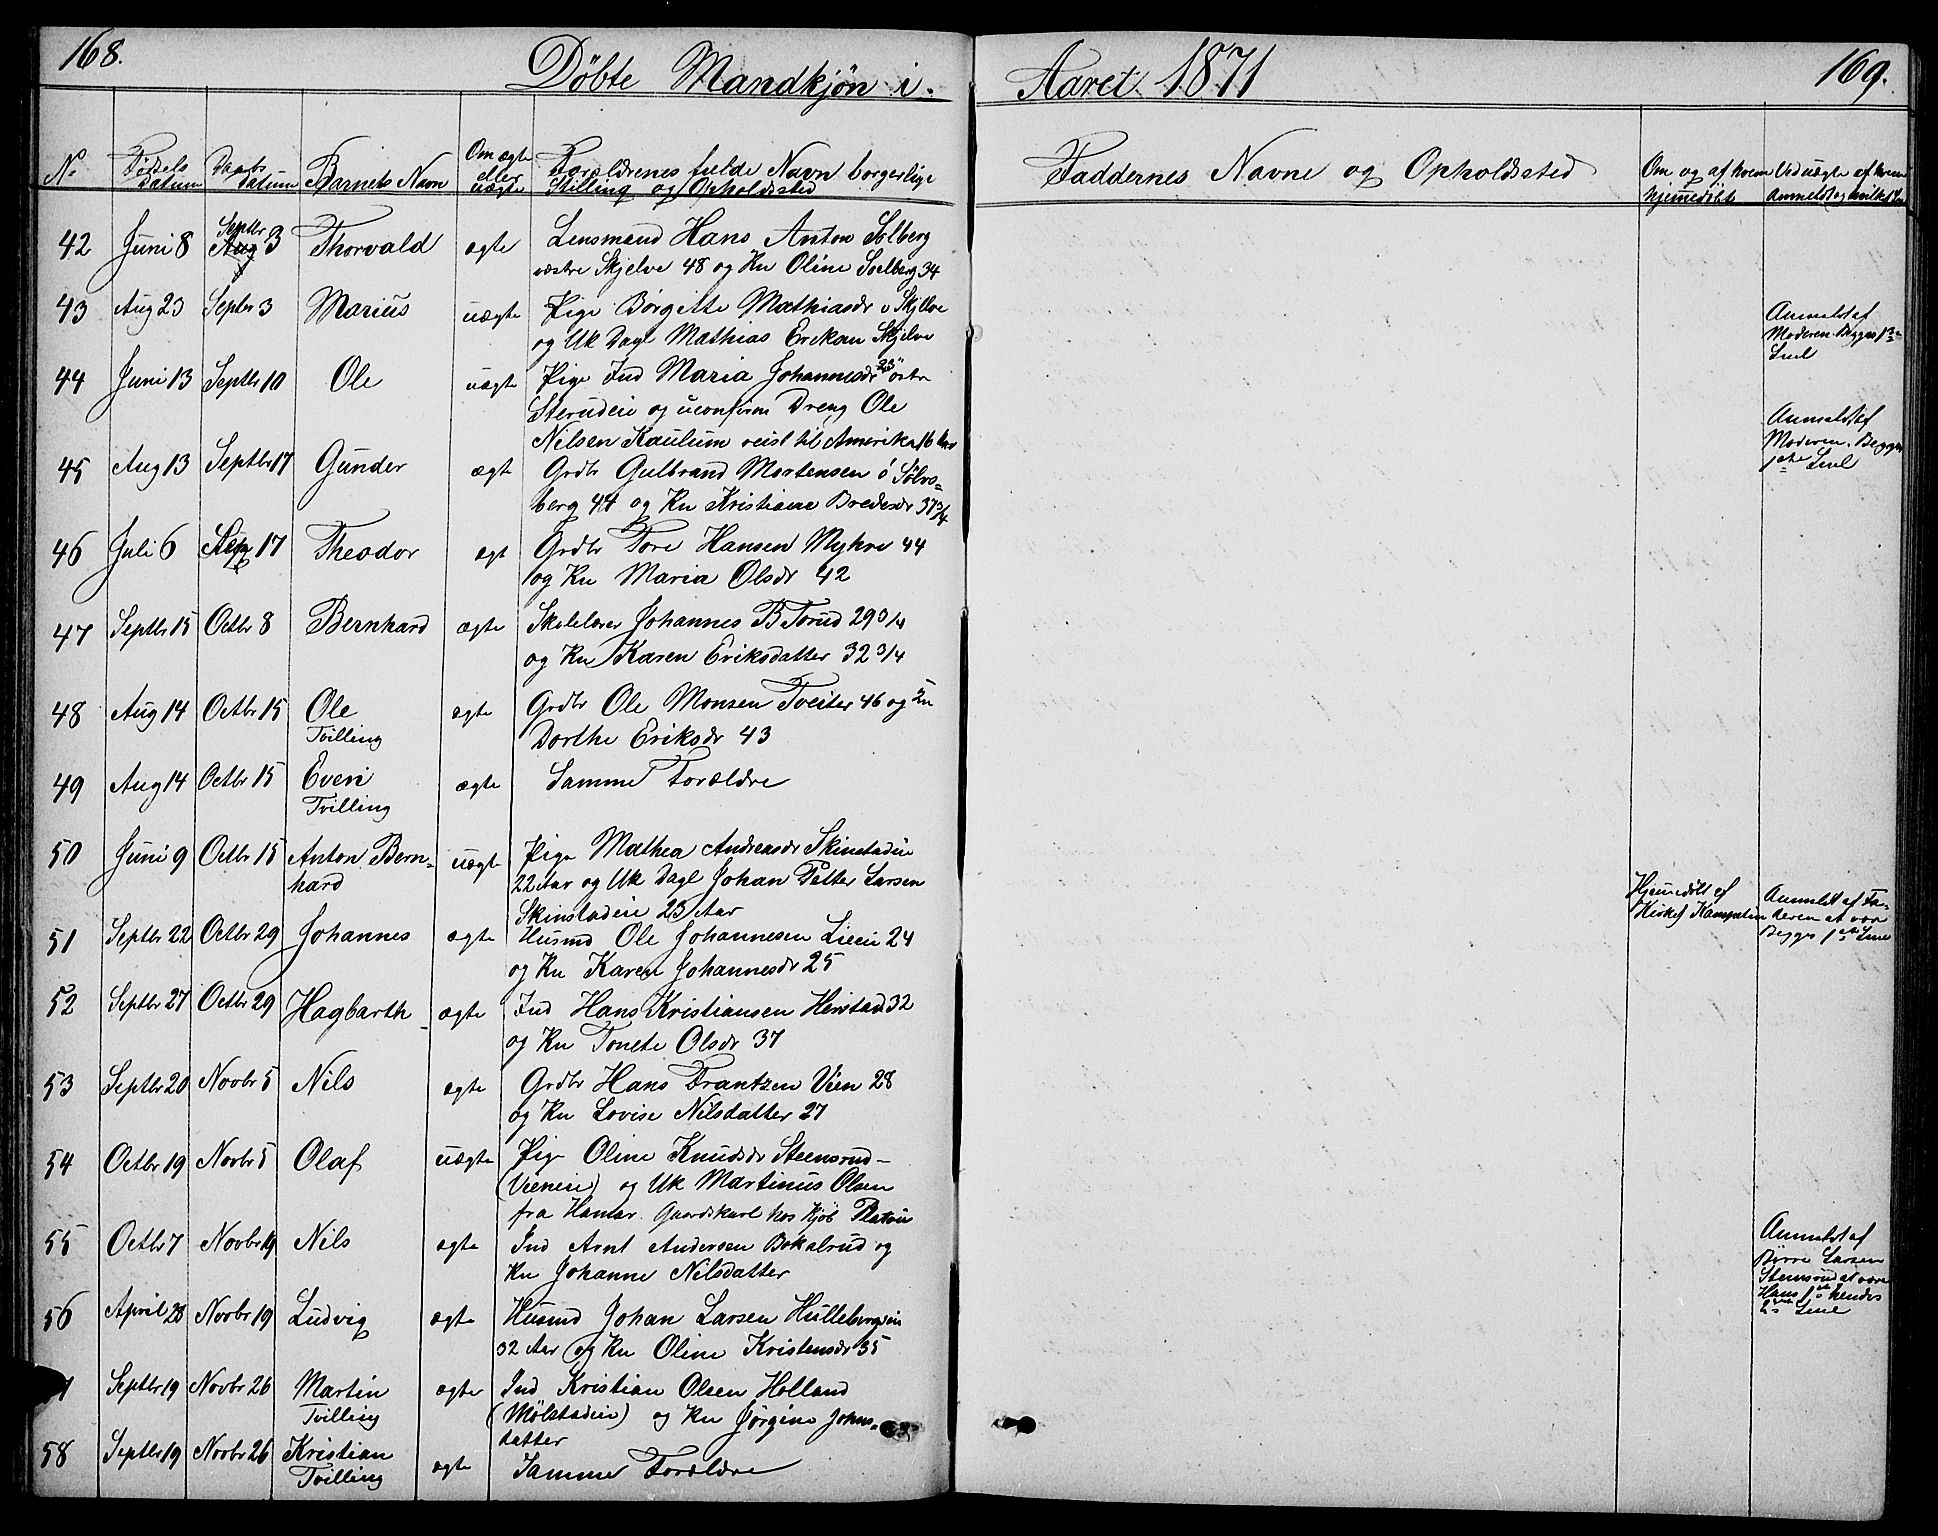 168.
Döbte Mandkjön i.
Aaret 1871
169.
No
Födsels datum
Daabs datum
Barnets Navn
Om ægte eller uægte
Forældrenes fulde Navn borgerlige
Stilling og Opholdssted
Faddernes Navne og Opholdssted
Om og af hvem hjemmedöbt
Ved uægte af hvem Anmeldt og hvilket
42 Juni 8 Septbr 3 Thorvald ægte Lensmand Hans Anton Solberg
vestre Skjelve 48 og Ku Oline Soelberg 34
43 Aug 23 Septbr 3 Marius uægte Pige Börgitte Mathiasdr v Skjelve
og Uk Dagl Mathias Ereksen Skjelve
Anmeldt af
Moderen Begges 1ste
Leul
44 Juni 13 Septbr 10 Ole uægte Pige Ind Maria Johannesdr 23 östr
og uconfirm Dreng Ole
Nilsen Kaulum reist til Amerika 16 Aar
Anmeldt af
Moderen. Begges
1ste Leul
45 Aug 13 Septbr 17 Gunder ægte Grdbr Gulbrand Mortensen ö Sölvs-
berg 44 og Ku Kristiane Bredesdr 37 3/4
46 Juli 6 Sep 17 Theodor ægt Grdbr Tore Hansen Myhre 44
og Ku Maria Olsdr 42
47 Septbr 15 Octbr 8 Bernhard ægte Skolelærer Johannes B Torud 29 3/4
og Ku Karen Eriksdatter 32 3/4
48 Aug 14 Octbr 15 Ole ægte Grdbr Ole Monsen Tveiter 46 og Ku
Tvilling
Dorthe Eriksdr 43
49 Aug 14 Octbr 15 Even ægte Samme Forældre
Tvilling
50 Juni 9 Octbr 15 Anton Bern-
hard
uægte Pige Mathea Andreasdr Skinstadeie
22 Aar og Uk Dagl Johan Petter Larsen
Skinstadeie 23 Aar
Hjemmedöbt af
Kirkes
Anmeldt af Fa-
deren at vær
Begges 1ste Leul
51 Septbr 22 Octbr 29 Johannes ægte Husmd Ole Johannesen Lieeie 24
og Ku Karen Johannesdr 25
52 Septbr 27 Octbr 29 Hagbarth ægte Ind Hans Kristiansen Henstad 32
og Ku Tonete Olsdr 37
53 Septbr 20 Novbr 5 Nils ægte Grdbr Hans Frantzen Vien 28
og Ku Lovise Nilsdatter 27
54 Octbr 19 Novbr 5 Olaf uægte Pige Oline Knudsdr Steensrud-
og Uk Martinus Olsen
fra Hamar. Gaardskarl hos Kjöb
Anmeldt af
Börre Larsen
Stensrud at være
Hans 1ste hendes
2de Leul
55 Octbr 7 Novbr 19 Nils ægte Ind Arnt Andersen Bokalrud og
Ku Johanne Nilsdatter
56 April 28 Novbr 19 Ludvig ægte Husmd Johan Larsen Hullebergeie
32 Aar og Ku Oline Kristensdr 35
Septbr 19 Novbr 26 Martin ægte Ind Kristian Olsen Holland
Tvilling
(Mölstadeie) og Ku Jörgine Johns-
datter
58 Septbr 19 Novbr 26 Kristian ægte Samme Forældre
Tvilling